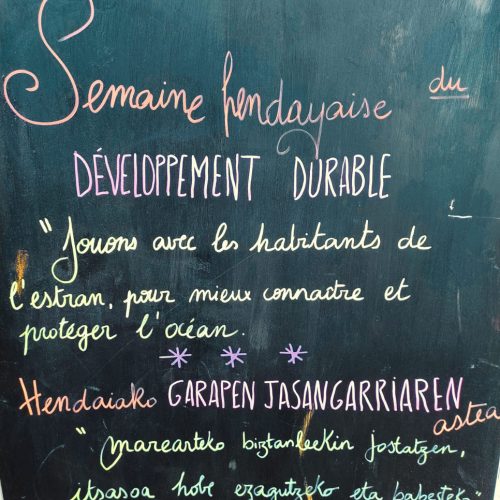 Semaine hendayaise du
DÉVELOPPEMENT DURABLE
"Jouons avec les habitants de
l'estran, pour mieux connaître et
protéger l'océan.
Hendaiako GARAPEN JASANGARRIAREN
astea
"Marearteko biztanleekin jostatzen,
itsasoa hobe ezagutzeko eta babesteko